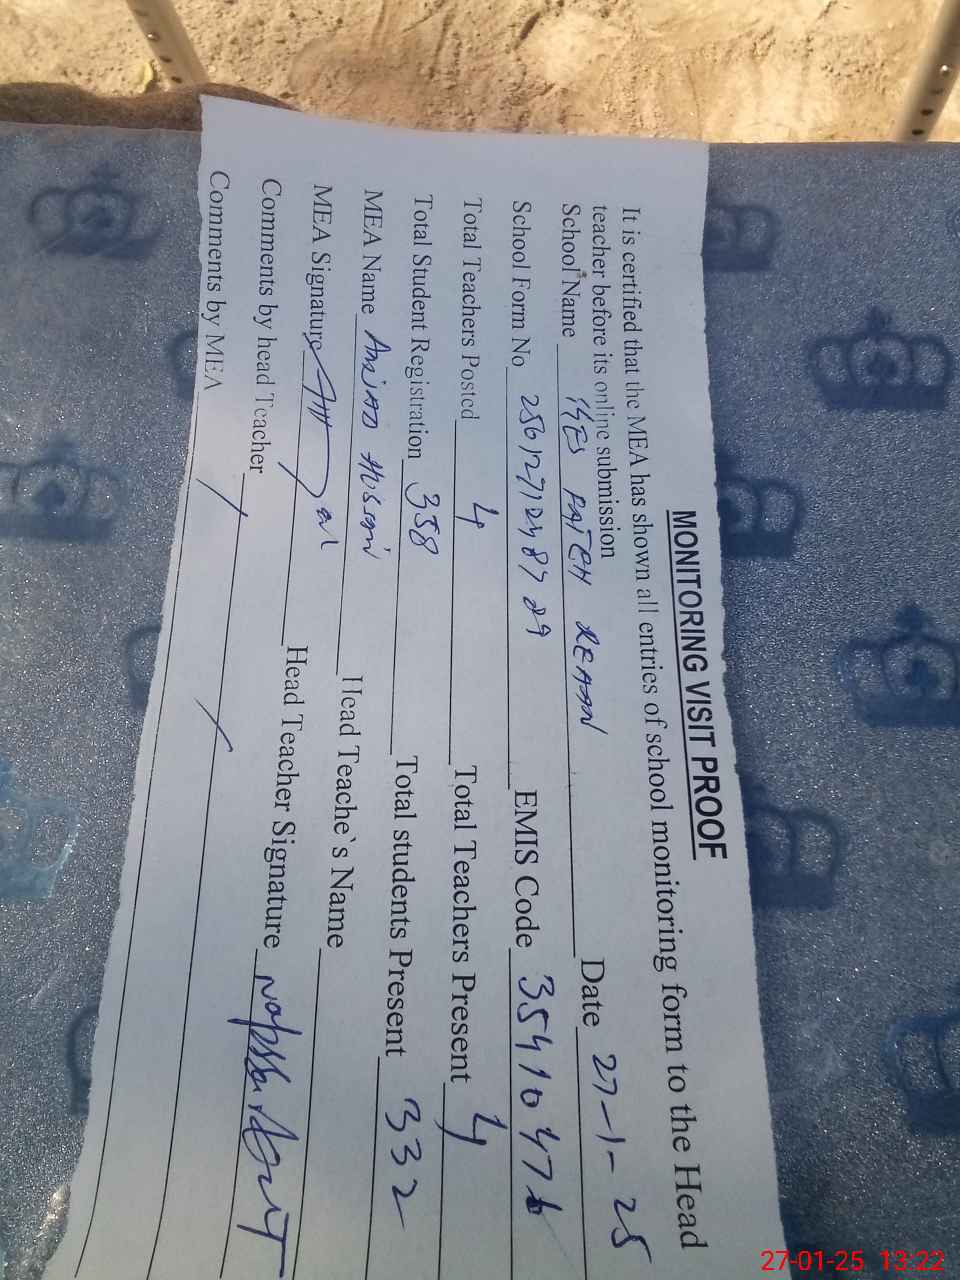 MONITORING VISIT PROOF
It is certified that the MEA has shown all entries of school monitoring form to the Head
teacher before its online submission
School Name FATEH Date 27-1-25
School Form No EMIS Code 35410476
Total Teachers Posted 4 Total Teachers Present 4
Total Student Registration 358 Total students Present 332
MEA Name Head Teache`s Name
MEA Signature Head Teacher Signature
Comments by head Teacher
Comments by MEA
27-01-25 13:22